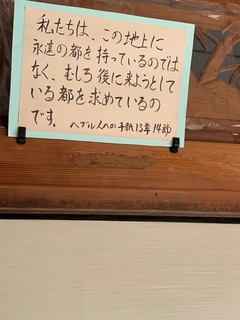 私たちは、この地上に
永遠の都を持っているのでは
なく、むしろ後に来ようとして
いる都を求めているの
です。 ヘブル人への手紙13章14節